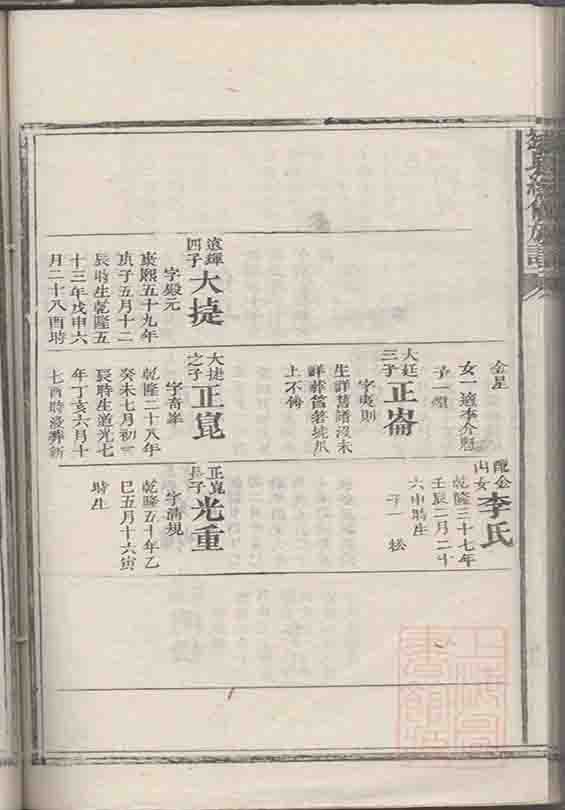 遠輝
四子
大㨗
字殿元
康熙五十九年
庚子五月十二
辰時生乾隆五
十三年戊申六
月二十八酉時
金星
女一適李介懸
子一
大廷
三子
正崙
字
生詳舊譜沒未
詳葬
上不傳
大㨗
之子
正崑
字
乾隆二十八年
癸未七月初三
辰時生道光七
年丁亥六月十
七酉時沒葬新
配金
内女
李氏
乾隆三十七年
壬辰二月二十
六申時生
子一
正崑
長子
光重
字
乾隆五十年乙
巳五月十六寅
時生
上海圖
書館藏